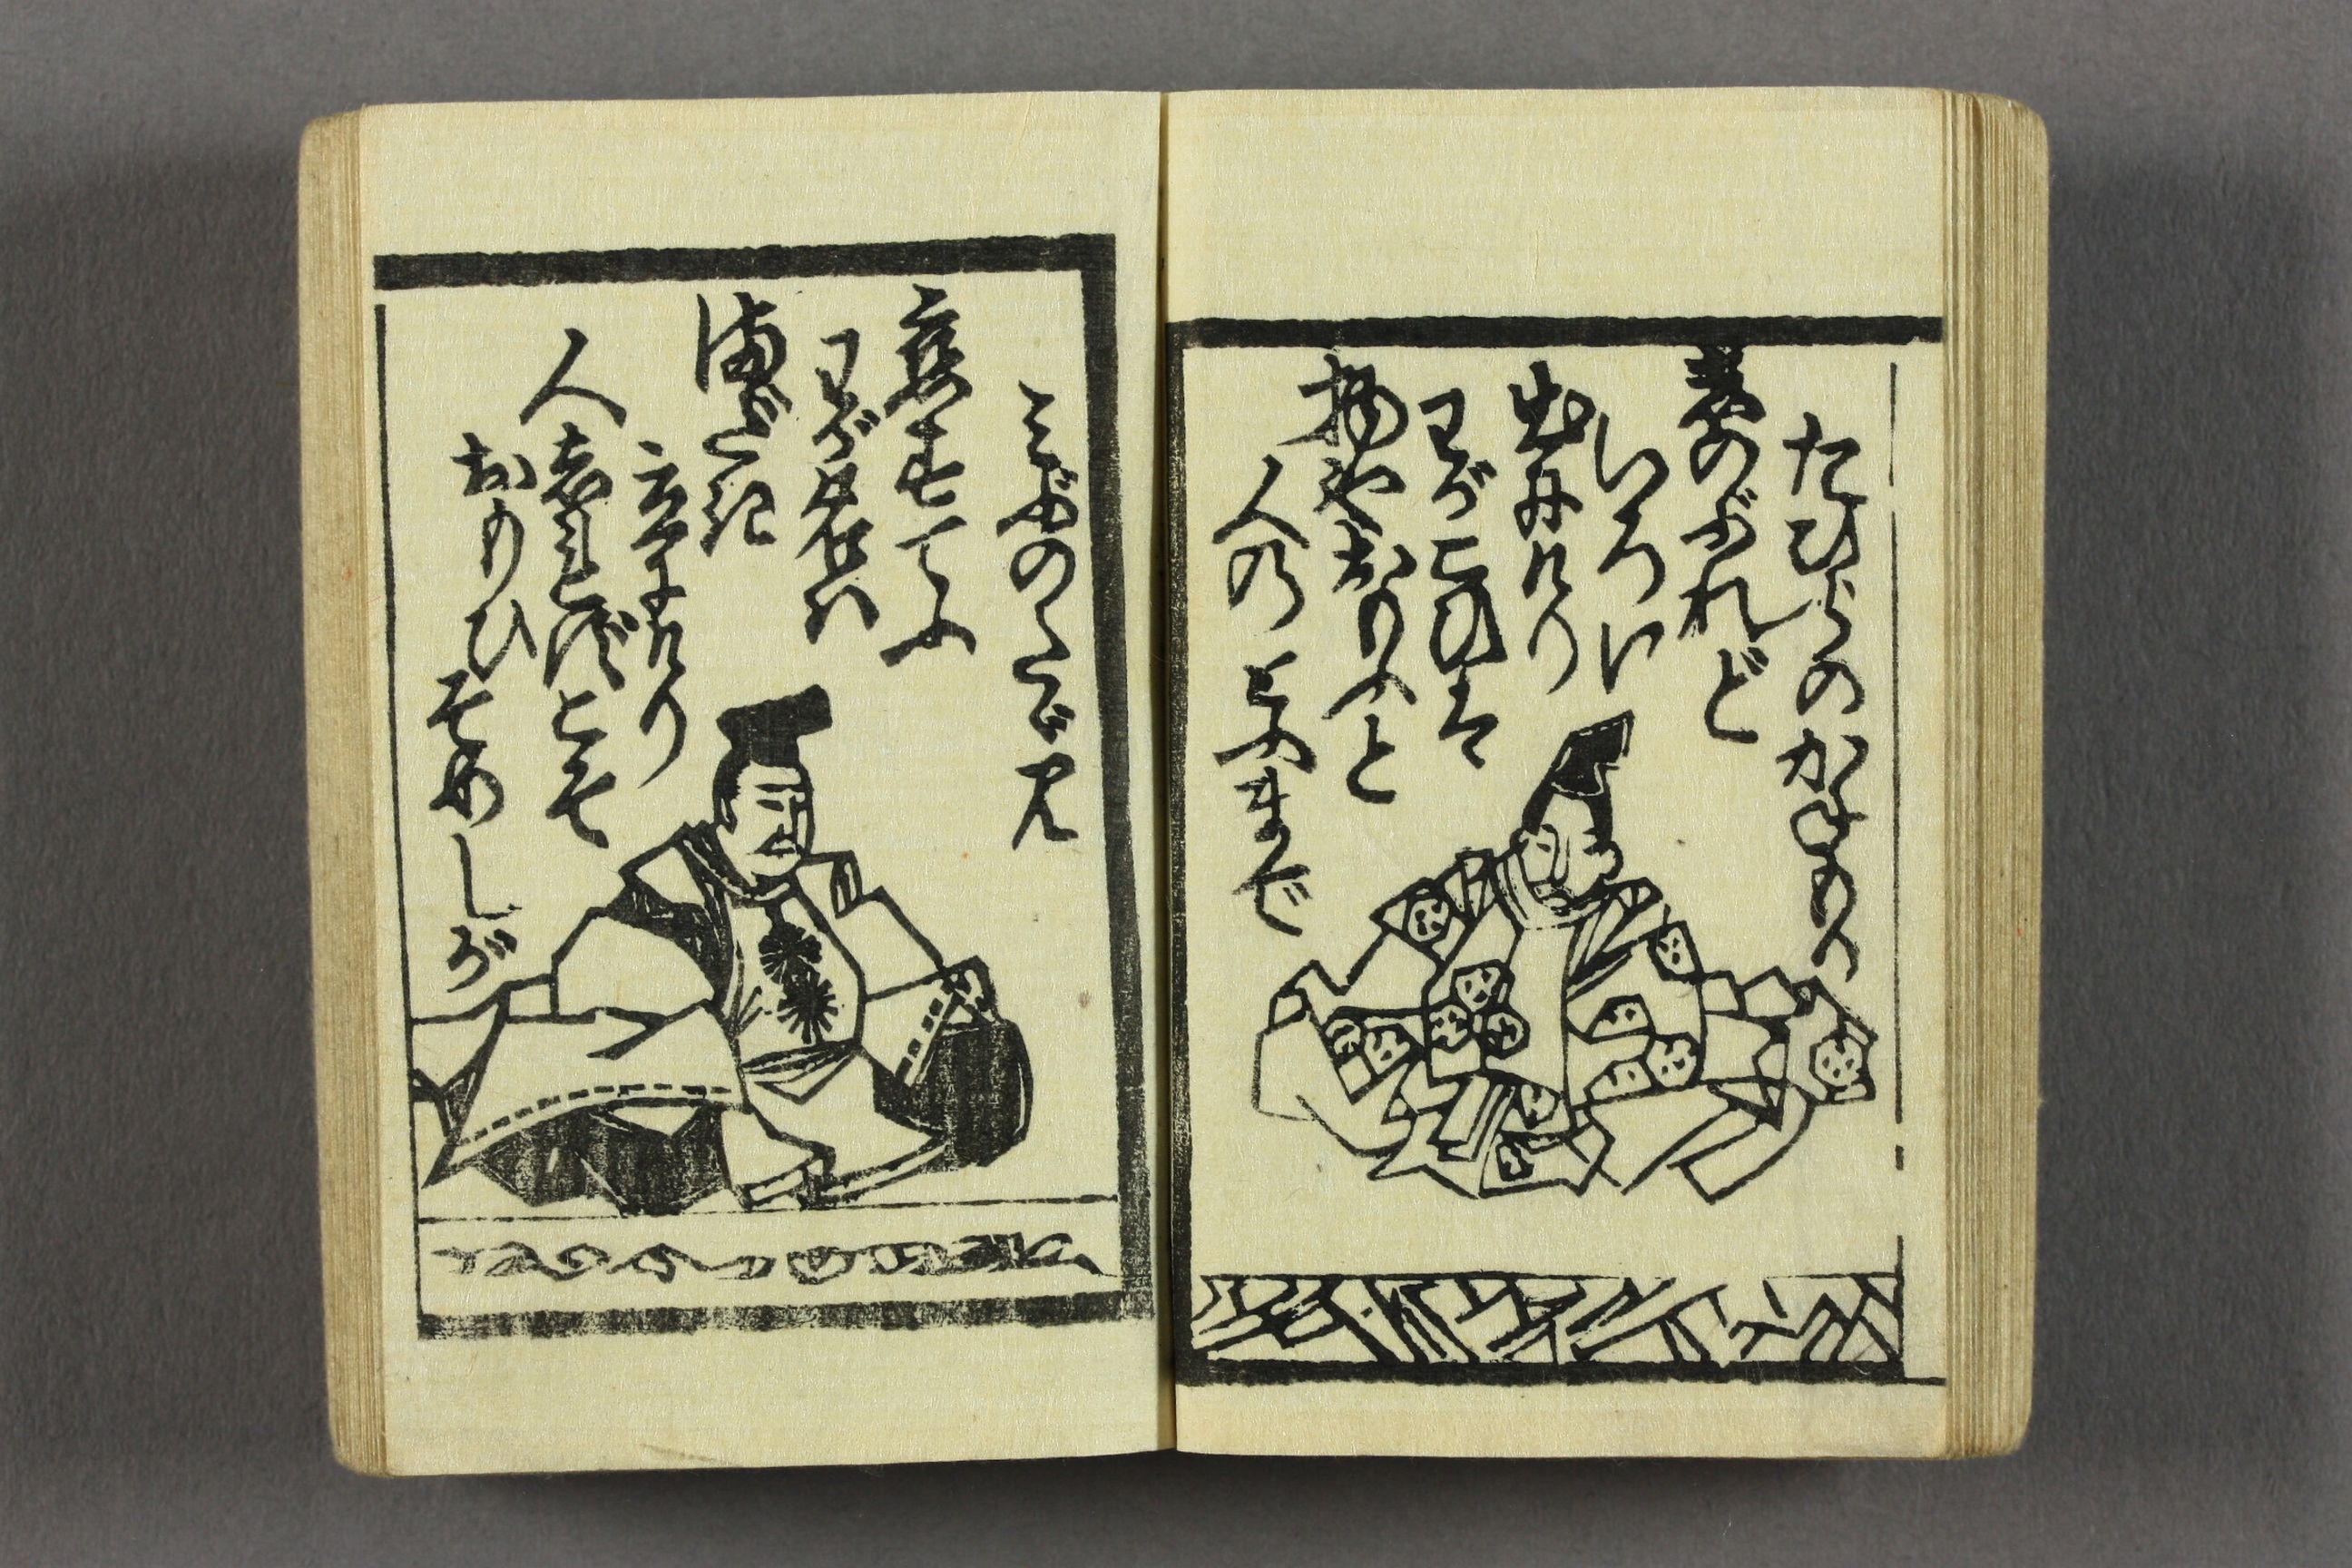 たひらのかねもり
忍ぶれど
いろに
出にけり
わがこひは
物やおもふと
人の とふまで
みぶのたゞみ
恋すてふ
わが名は
まだき
立にけり
人しれずこそ
おもひそめしが